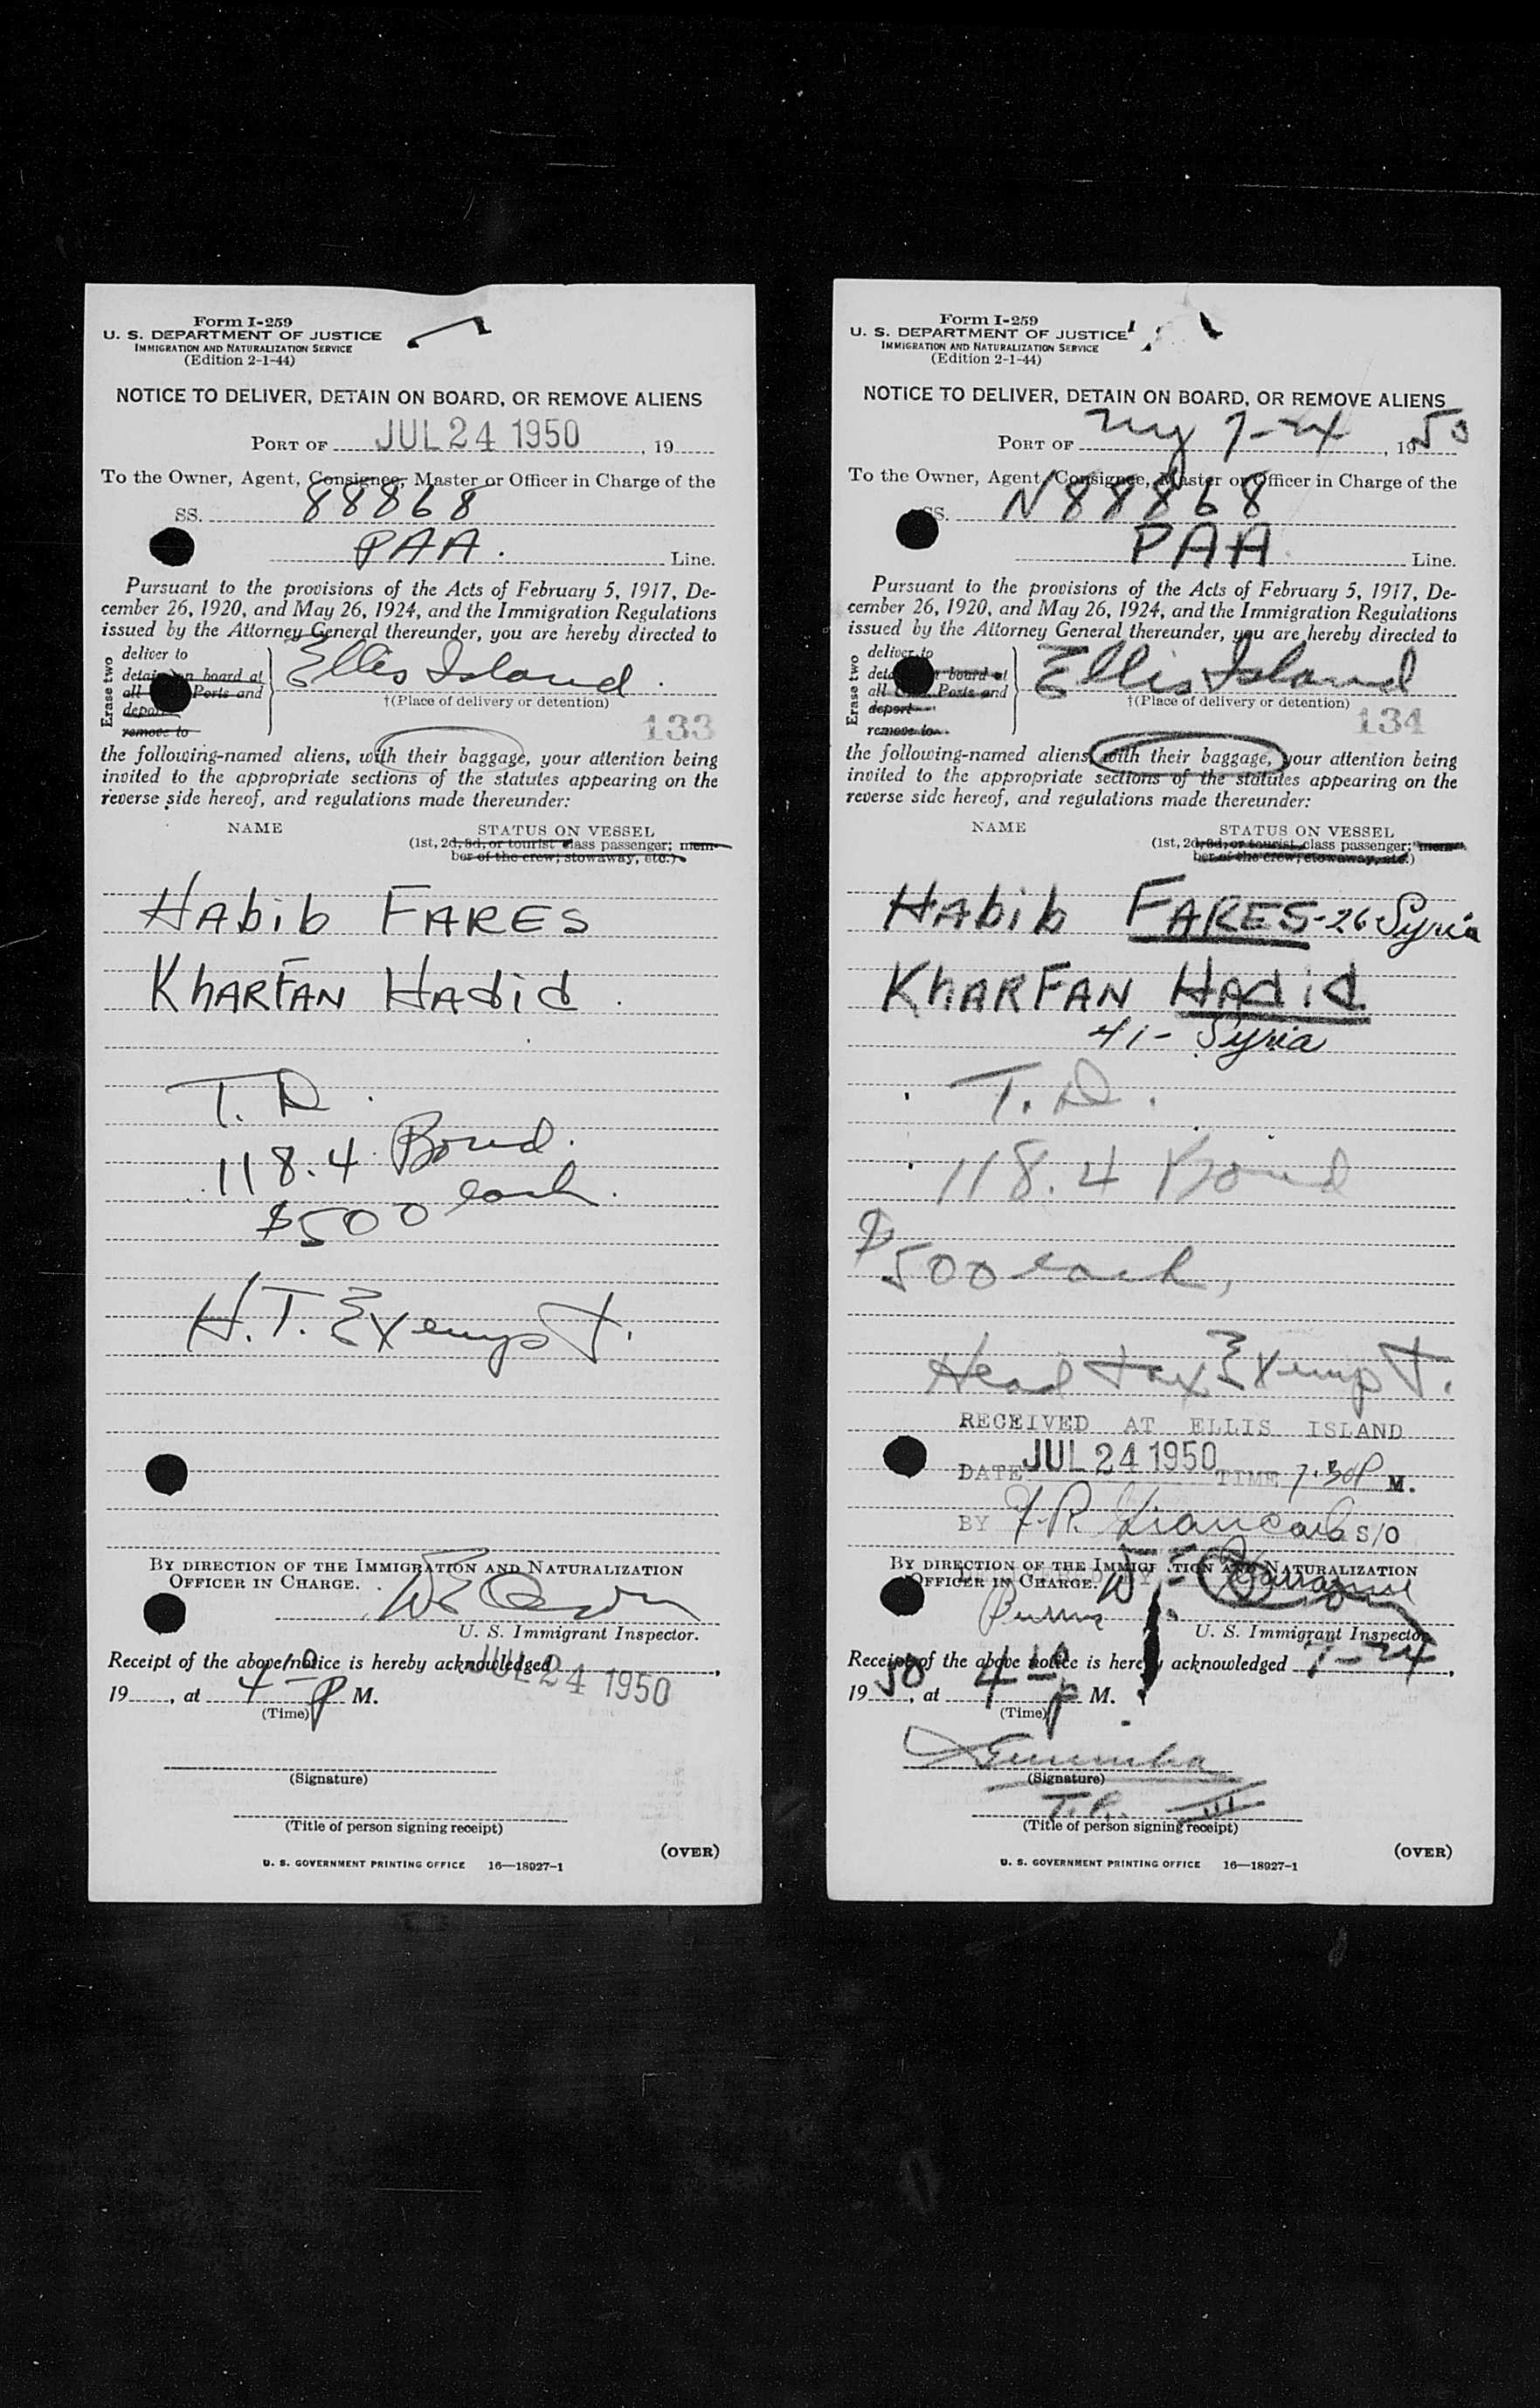 Form I-259
U. S. DEPARTMENT OF JUSTICE
IMMIGRATION AND NATURALIZATION SERVICE
(Edition 2-1-44)
NOTICE TO DELIVER, DETAIN ON BOARD, OR REMOVE ALIENS
PORT OF JUL 24 1950, 19
To the Owner, Agent, Consignee, Master or Officer in Charge of the
SS. 88868
PAA. Line.
Pursuant to the provisions of the Acts of February 5, 1917, De-
cember 26, 1920, and May 26, 1924, and the Immigration Regulations
issued by the Attorney General thereunder, you are hereby directed to
Erase two
deliver to
detain on board at
all Ports and
deport
remove to
Ellis Island.
†(Place of delivery or detention)
133
the following-named aliens, with their baggage, your attention being
invited to the appropriate sections of the statutes appearing on the
reverse side hereof, and regulations made thereunder:
NAME
STATUS ON VESSEL
(1st, 2d, 3d, or tourist class passenger; mem-
ber of the crew; stowaway, etc.)
HAbib FARES
KhARFAN HAdid.
T. D.
118.4 Bond.
$500 each.
H.T. Exempt.
BY DIRECTION OF THE IMMIGRATION AND NATURALIZATION
OFFICER IN CHARGE.
U. S. Immigrant Inspector.
Receipt of the above notice is hereby acknowledged JUL 24 1950,
19, at 4 P M.
(Time)
(Signature)
(Title of person signing receipt)
(OVER)
U. S. GOVERNMENT PRINTING OFFICE 16—18927-1
Form I-259
U. S. DEPARTMENT OF JUSTICE
IMMIGRATION AND NATURALIZATION SERVICE
(Edition 2-1-44)
NOTICE TO DELIVER, DETAIN ON BOARD, OR REMOVE ALIENS
PORT OF NY 7-24, 1950
To the Owner, Agent, Consignee, Master or Officer in Charge of the
SS. N88868
PAA Line.
Pursuant to the provisions of the Acts of February 5, 1917, De-
cember 26, 1920, and May 26, 1924, and the Immigration Regulations
issued by the Attorney General thereunder, you are hereby directed to
Erase two
deliver to
detain on board at
all Ports and
deport
remove to
Ellis Island
†(Place of delivery or detention)
134
the following-named aliens, with their baggage, your attention being
invited to the appropriate sections of the statutes appearing on the
reverse side hereof, and regulations made thereunder:
NAME
STATUS ON VESSEL
(1st, 2d, 3d, or tourist class passenger; mem-
ber of the crew; stowaway, etc.)
HAbib FARES-26 Syria
KhARFAN HAdid
41- Syria
T. D.
118.4 Bond
$500 each,
Head tax Exempt.
RECEIVED AT ELLIS ISLAND
DATE JUL 24 1950 TIME 7:30P M.
BY S/O
BY DIRECTION OF THE IMMIGRATION AND NATURALIZATION
OFFICER IN CHARGE.
U. S. Immigrant Inspector
Receipt of the above notice is hereby acknowledged 7-24,
1950, at 4 P M.
(Time)
(Signature)
(Title of person signing receipt)
(OVER)
U. S. GOVERNMENT PRINTING OFFICE 16—18927-1